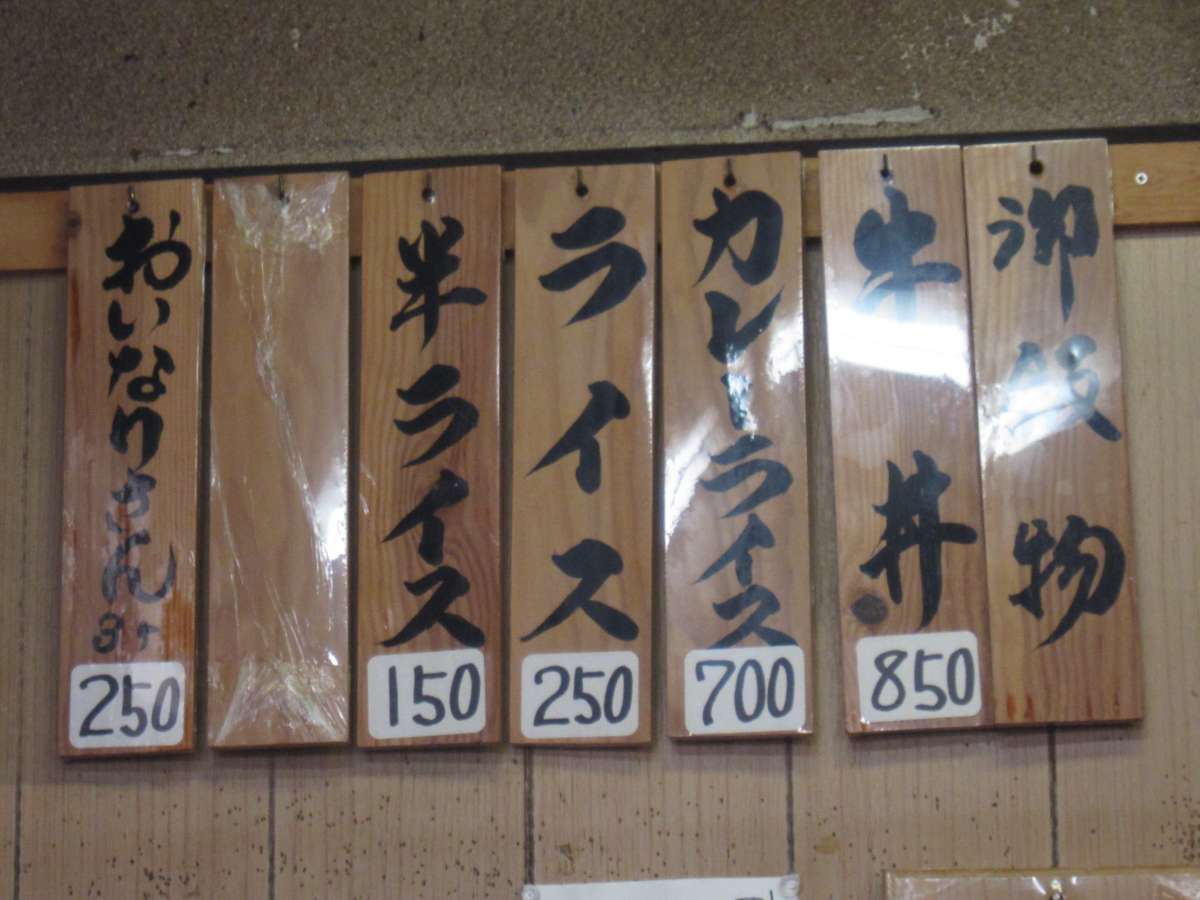 御飯物
牛丼
850
カレーライス
700
ライス
250
半ライス
150
おいなりさん
3ケ
250